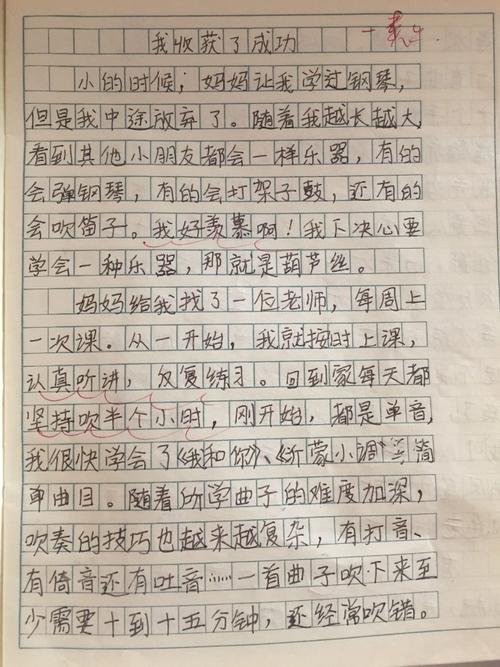 我收获了成功
小的时候，妈妈让我学过钢琴，
但是我中途放弃了。随着我越长越大，
看到其他小朋友都会一样乐器，有的
会弹钢琴，有的会打架子鼓，还有的
会吹笛子。我好羡慕啊！我下决心要
学会一种乐器，那就是葫芦丝。
妈妈给我找了一位老师，每周上
一次课。从一开始，我就按时上课，
认真听讲，反复练习。回到家每天都
坚持吹半个小时，刚开始，都是单音，
我很快学会了《我和你》、《沂蒙小调》等简
单曲目。随着所学曲子的难度加深，
吹奏的技巧也越来越复杂，有打音、
有倚音还有吐音……一首曲子吹下来至
少需要十到十五分钟，还经常吹错。